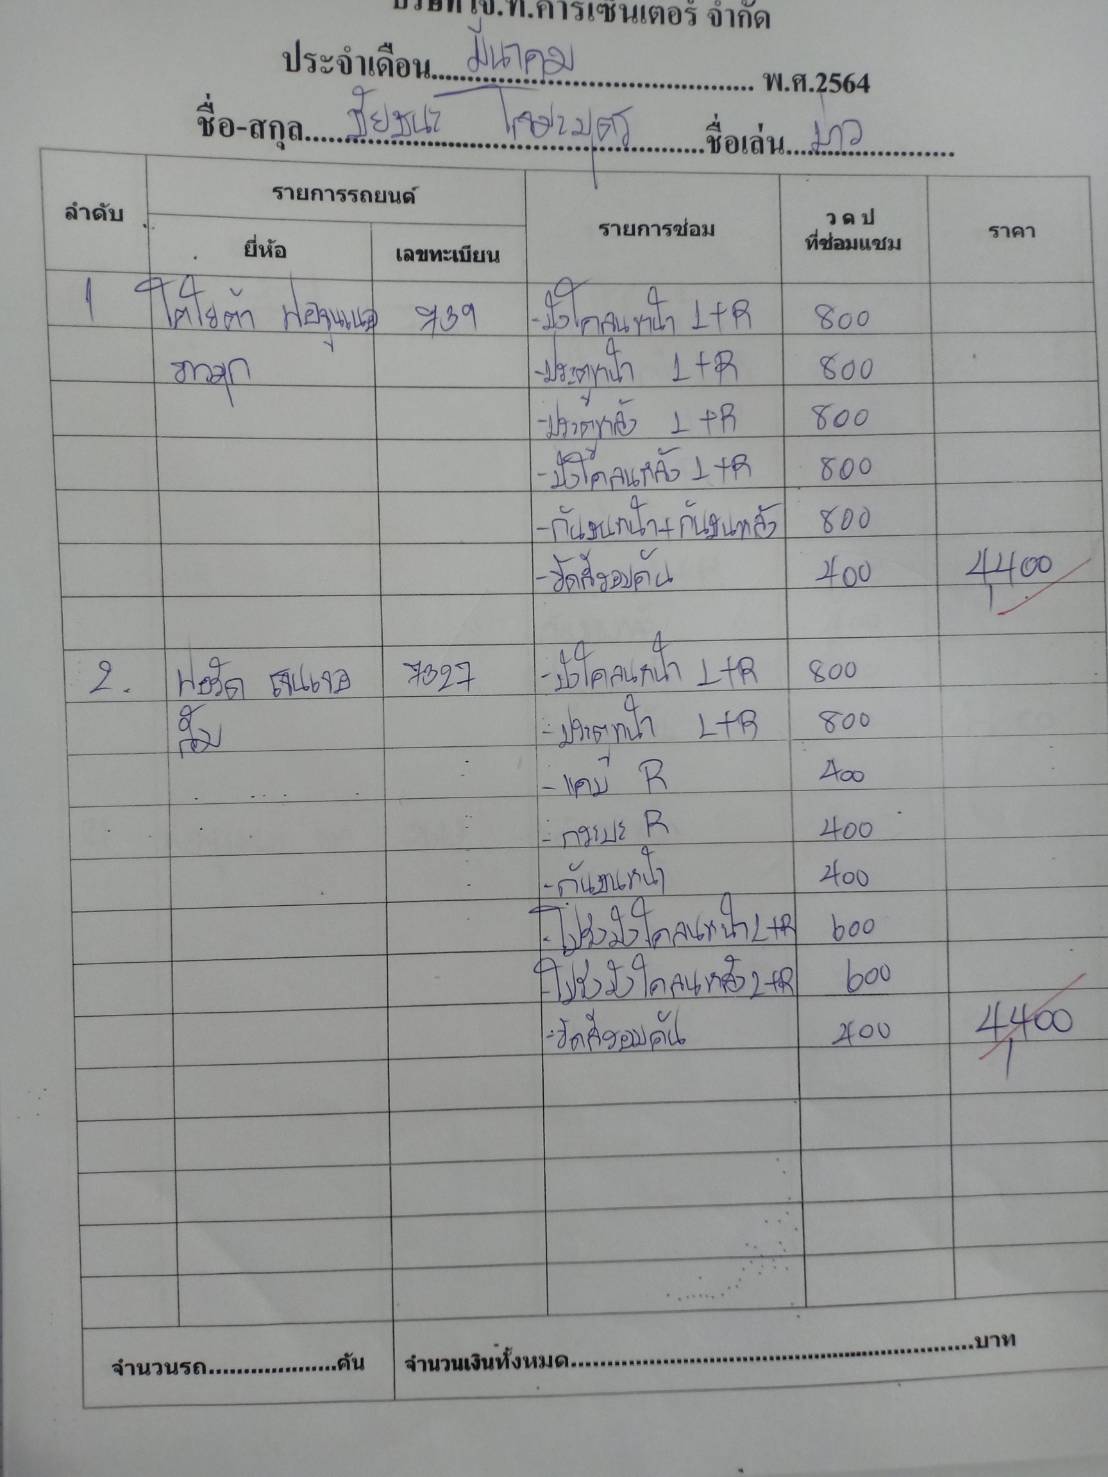 .ท.คาร์เซ็นเตอร์ จำกัด
ประจำเดือน....มีนาคม.... พ.ศ.2564
ชื่อ-สกุล....ชัยชนะ ....ชื่อเล่น....
ลำดับ รายการรถยนต์ รายการซ่อม ว ด ป ที่ซ่อมแซม ราคา
ยี่ห้อ เลขทะเบียน
1 โตโยต้า ฟอจูนเนอ 739 -บังโคลนหน้า L+R 800
ขาวมุก -ประตูหน้า L+R 800
-ประตูหลัง L+R 800
-บังโคลนหลัง L+R 800
-กันชนหน้า+กันชนหลัง 800
-ขัดสีรอบคัน 400 4400
2. ฟอร์ด เรนเจอ 7327 -บังโคลนหน้า L+R 800
ส้ม -ประตูหน้า L+R 800
-แคป R 400
-กระบะ R 400
-กันชนหน้า 400
-โป่งบังโคลนหน้า L+R 600
-โป่งบังโคลนหลัง L+R 600
-ขัดสีรอบคัน 400 4400
จำนวนรถ....................คัน จำนวนเงินทั้งหมด....................บาท